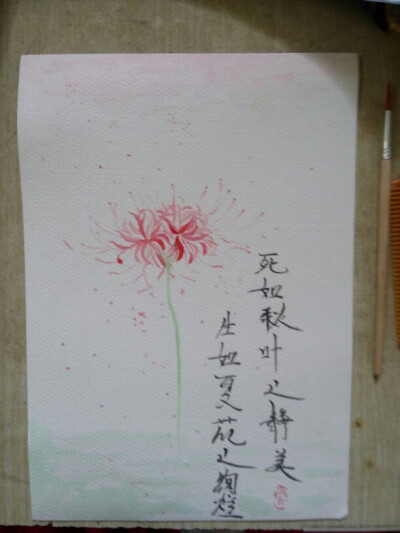 死如秋叶之静美
生如夏花之绚烂